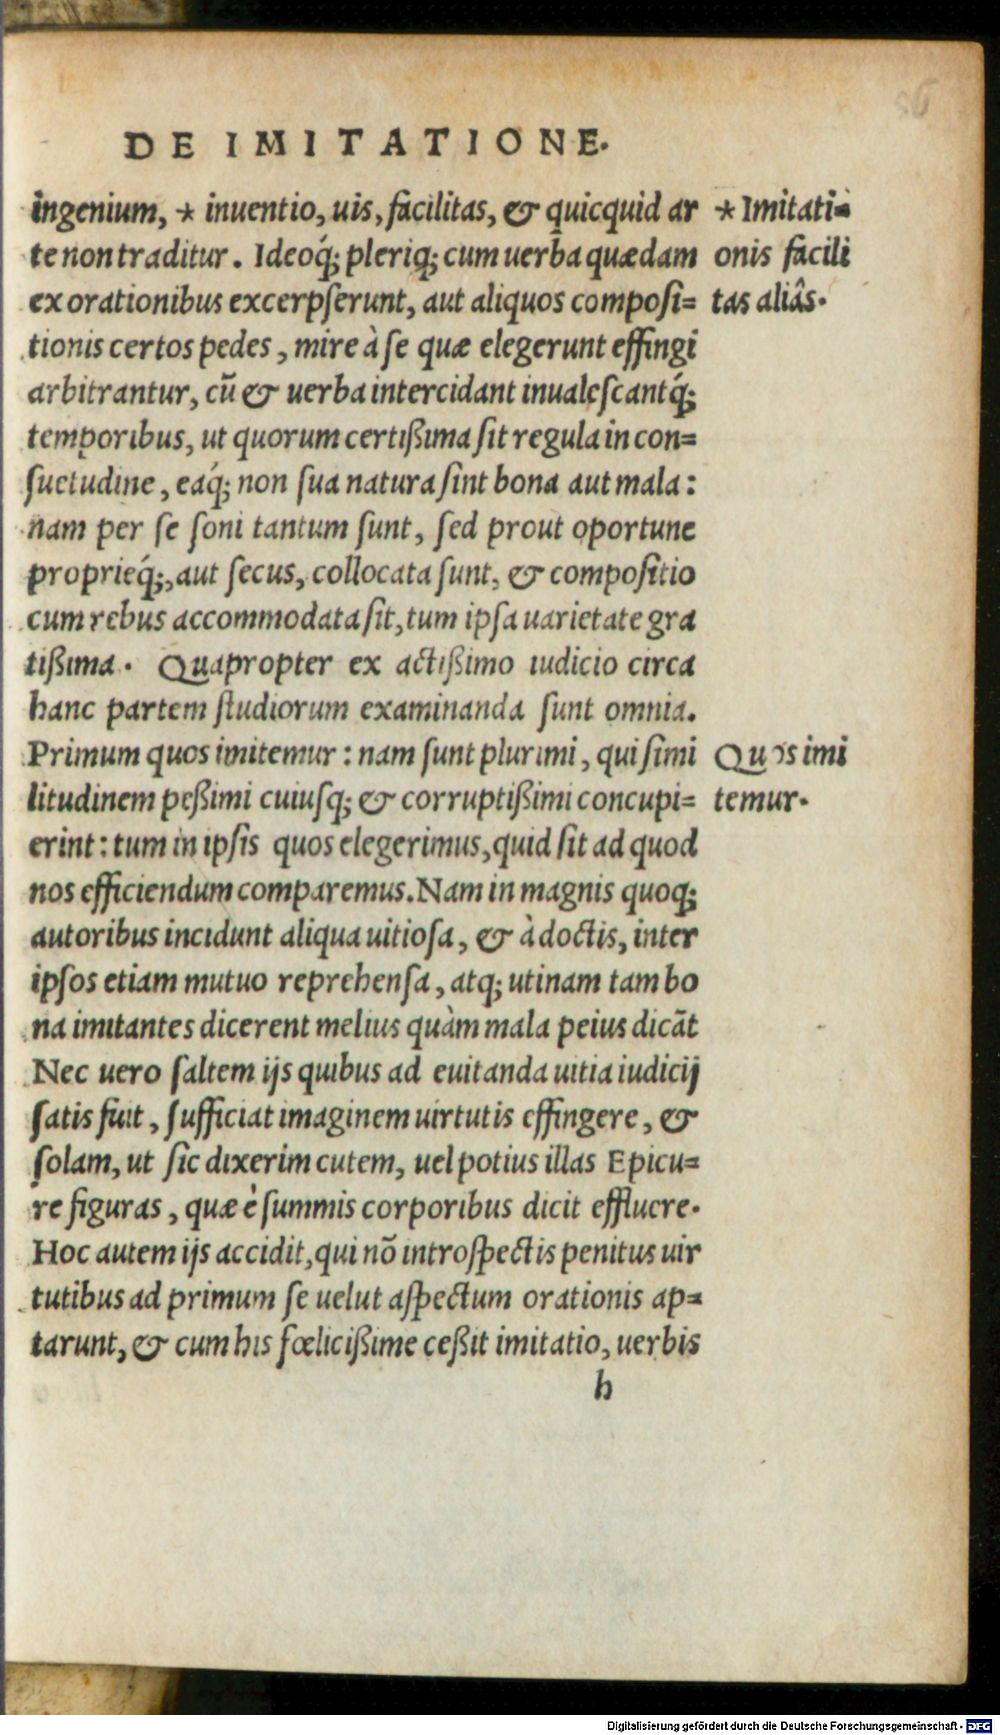 56
DE IMITATIONE.
ingenium, * inuentio, uis, facilitas, & quicquid ar
te non traditur. Ideoq́; pleriq̃; cum uerba quædam
ex orationibus excerpſerunt, aut aliquos compoſi=
tionis certos pedes, mire à ſe quæ elegerunt effingi
arbitrantur, cũ & uerba intercidant inualeſcantq́;
temporibus, ut quorum certißima ſit regula in con=
ſuetudine, eaq́; non ſua natura ſint bona aut mala:
nam per ſe ſoni tantum ſunt, ſed prout oportune
proprieq́;, aut ſecus, collocata ſunt, & compoſitio
cum rebus accommodata ſit, tum ipſa uarietate gra
tißima. Quapropter ex actißimo iudicio circa
hanc partem ſtudiorum examinanda ſunt omnia.
Primum quos imitemur: nam ſunt plurimi, qui ſimi
litudinem peßimi cuiuſq; & corruptißimi concupi=
erint: tum in ipſis quos elegerimus, quid ſit ad quod
nos efficiendum comparemus. Nam in magnis quoq;
autoribus incidunt aliqua uitioſa, & à doctis, inter
ipſos etiam mutuo reprehenſa, atq; utinam tam bo
na imitantes dicerent melius quàm mala peius dicãt
Nec uero ſaltem ijs quibus ad euitanda uitia iudicij
ſatis fuit, ſufficiat imaginem uirtutis effingere, &
ſolam, ut ſic dixerim cutem, uel potius illas Epicu=
re figuras, quæ è ſummis corporibus dicit effluere.
Hoc autem ijs accidit, qui nõ introſpectis penitus uir
tutibus ad primum ſe uelut aſpectum orationis ap=
tarunt, & cum his fœlicißime ceßit imitatio, uerbis
h
* Imitati=
onis facili
tas aliâs.
Quos imi
temur.
Digitalisierung gefördert durch die Deutsche Forschungsgemeinschaft - DFG